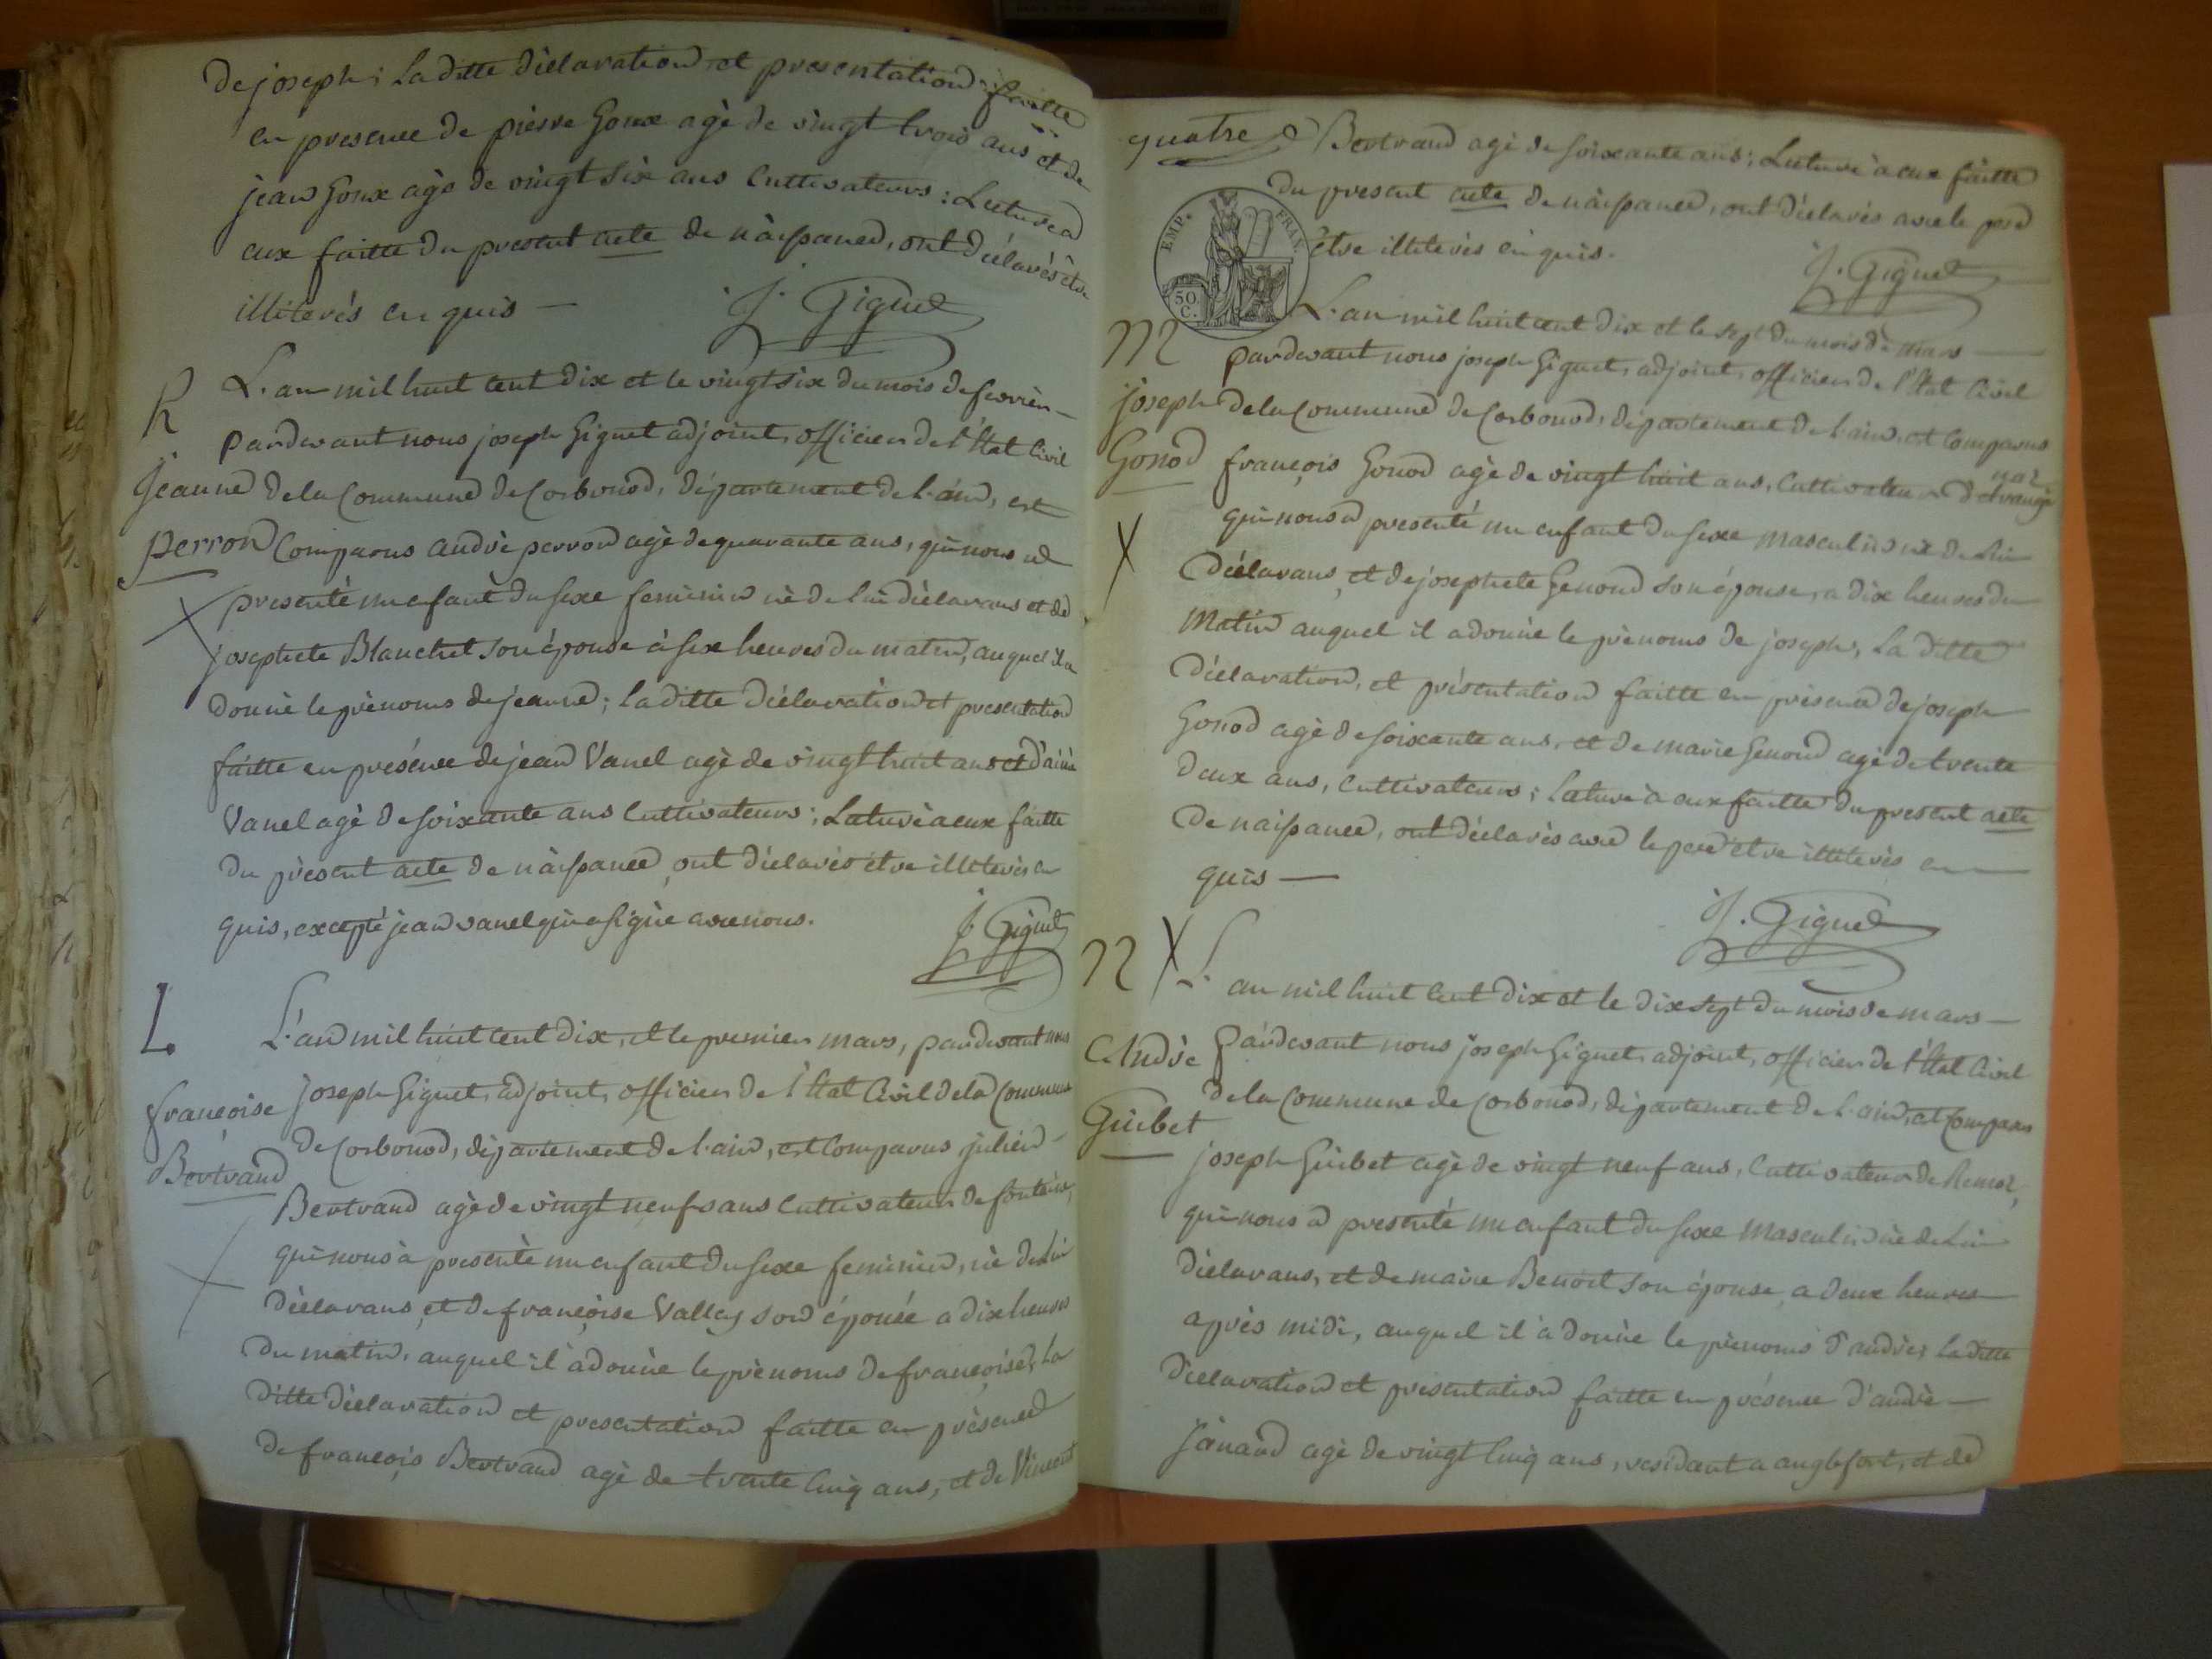 de joseph; La ditte déclaration et presentation faitte
en presence de pierre Goux agè de vingt trois ans et de
jean Goux agè de vingt six ans Cultivateurs; Lecture a
eux faitte du present acte de nàissance, ont déclarés être
illiterés en quis
J. Giguet
K
L'an mil huit cent dix et le vingt six du mois de fevrièr
pardevant nous joseph Giguet adjoint, officier de l'Etat Civil
Jeanne de la Commune de Corbonod, département de l'ain, est
perron Comparus andré perron agè de quarante ans, qui nous a
presenté un enfant du sexe feminin né de lui déclarans et de
josephete Blanchet son épouse à six heures du matin, auquel il a
donné le prénoms de jeanne; la ditte déclaration et presentation
faitte en présence de jean Vanel agè de vingt huit ans et d'aimé
Vanel agè de soixante ans Cultivateurs; Lecture à eux faitte
du présent acte de nàissance, ont déclarés être illiterés en
quis, excepté jean vanel qui a signé avec nous.
J. Giguet
L
L'an mil huit cent dix, et le premier mars, pardevant nous
françoise joseph Giguet, adjoint, officier de l'Etat Civil de la Commune
de Corbonod, département de l'ain, est Comparus julien
Bertrand
Bertrand agè de vingt neuf ans Cultivateur de
qui nous à presenté un enfant du sexe feminin, né de lui
déclarans, et de françoise Vallay son épouse a dix heures
du matin, auquel il a donné le prénoms de françoise, La
ditte déclaration et presentation faitte en présence
de françois Bertrand agè de trente Cinq ans, et de Vincent
quatre Bertrand agè de soixante ans; Lecture à eux faitte
du present acte de nàissance, ont déclarés avec le pere
être illiterés en quis.
EMP. FRAN.
50 C.
J. Giguet
L'an mil huit cent dix et le sept du mois de mars
M
pardevant nous joseph Giguet, adjoint, officier de l'Etat Civil
joseph de la Commune de Corbonod, département de l'ain, est Comparus
Gonod françois Gonod agè de vingt huit ans, Cultivateur
qui nous a presenté un enfant du sexe masculin né de lui
déclarans, et de josephete Genond son épouse, a dix heures du
Matin auquel il a donné le prénoms de joseph, La ditte
déclaration, et présentation faitte en présence de joseph
Gonod agè de soixante ans, et de marie Genond agè de trente
deux ans, Cultivateurs; Lecture à eux faitte du present acte
de naissance, ont déclarés avec le pere être illiterés en
quis
J. Giguet
N
L'an mil huit cent dix et le dix sept du mois de mars
André pardevant nous joseph Giguet, adjoint, officier de l'Etat Civil
de la Commune de Corbonod, département de l'ain, est Comparus
Guibet
joseph Guibet agè de vingt neuf ans, Cultivateur de Remoz,
qui nous a presenté un enfant du sexe masculin né de lui
déclarans, et de marie Benoit son épouse, a deux heures
après midi, auquel il à donné le prénoms d'andré; La ditte
déclaration et presentation faitte en présence d'andré
Janand agè de vingt Cinq ans, residant a anglefort, et de